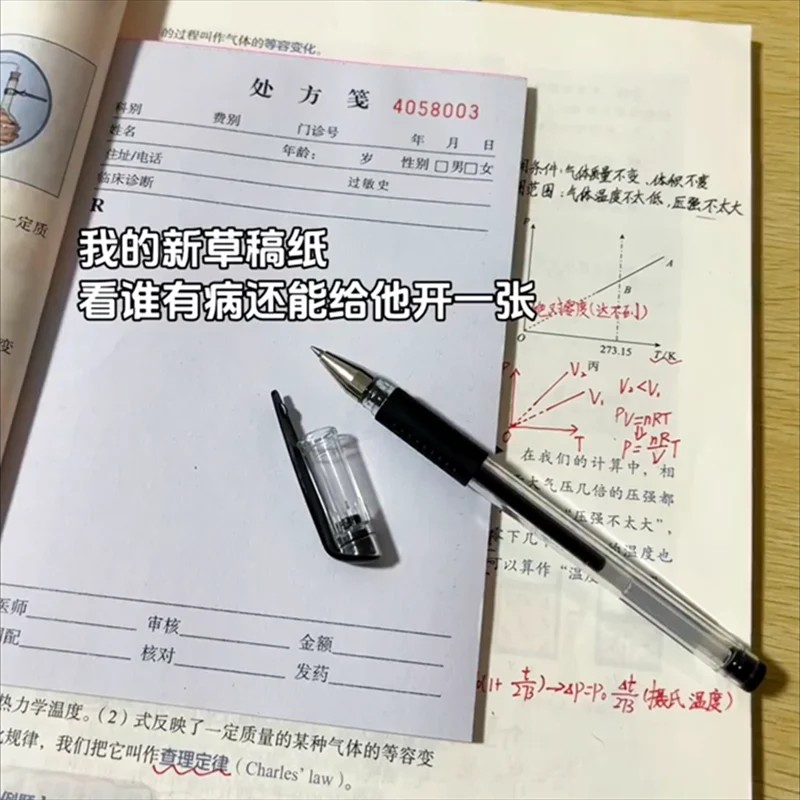 的过程叫作气体的等容变化。
处方笺 4058003
科别 费别 门诊号 年 月 日
姓名 年龄： 岁 性别 □男□女
住址/电话
临床诊断 过敏史
R
我的新草稿纸
看谁有病还能给他开一张
一定质
变
条件：气体质量不变、体积不变
范围：气体温度不太低，压强不太大
P
A
B
O
273.15 T/K
丙
P V₂ V₂<V₁
V₁
PV=nRT
P=nR/V T
O T
在我们的计算中，相
大气压几倍的压强都
“压强不太大”，
零下几 的温度也
可以算作“温度
医师 审核 金额
调配 核对 发药
(1+t/273)→ΔP=P₀Δt/273(摄氏温度)
热力学温度。（2）式反映了一定质量的某种气体的等容变
化规律，我们把它叫作查理定律（Charles' law）。